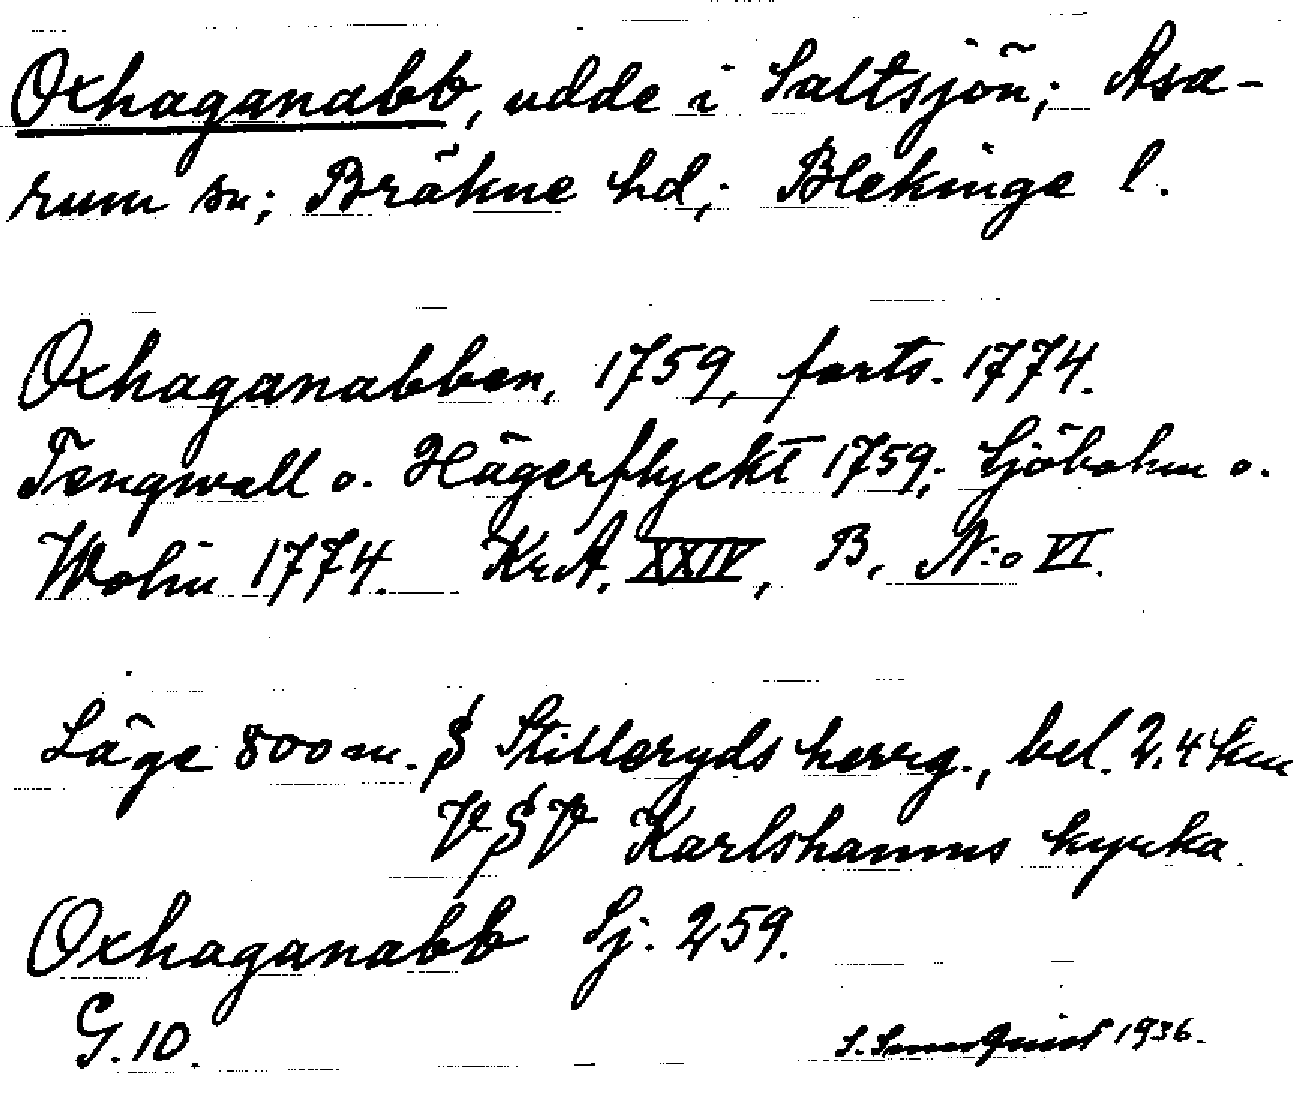 Oxhaganabb, udde i Saltsjön; Asa-
rum sn; Bräkne hd; Blekinge l.
Oxhaganabben, 1759, forts. 1774.
Tengwall o. Hägerflyckt 1759; Sjöbohm o.
Wohn 1774. KrA. XXIV, B, N:o VI.
Läge 800 m. S Stilleryds herrg., bel. 2,4 km
VSV Karlshamns kyrka
Oxhaganabb Sj. 259.
G. 10.
1936.